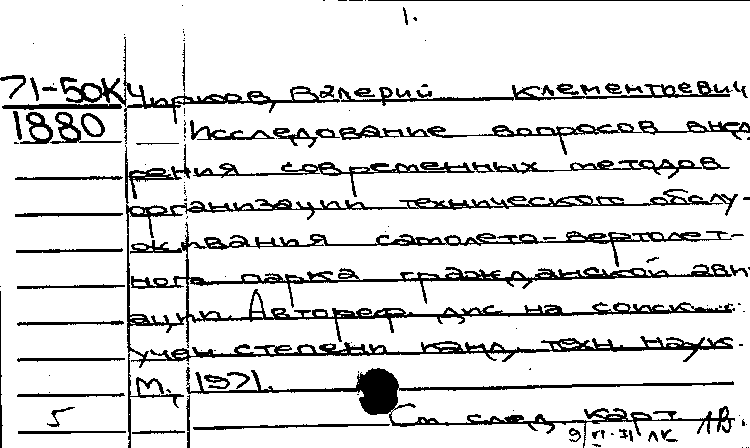 1.
71-50К Чирков, Валерий Клементьевич
1880 Исследование вопросов внед
рения современных методов
организации технического обслу-
живания самолето-вертолет-
ного парка гражданской ави
ации. Автореф. дис на соиск.
учен степени канд. техн. наук.
М., 1971.
5 См. след. карт.